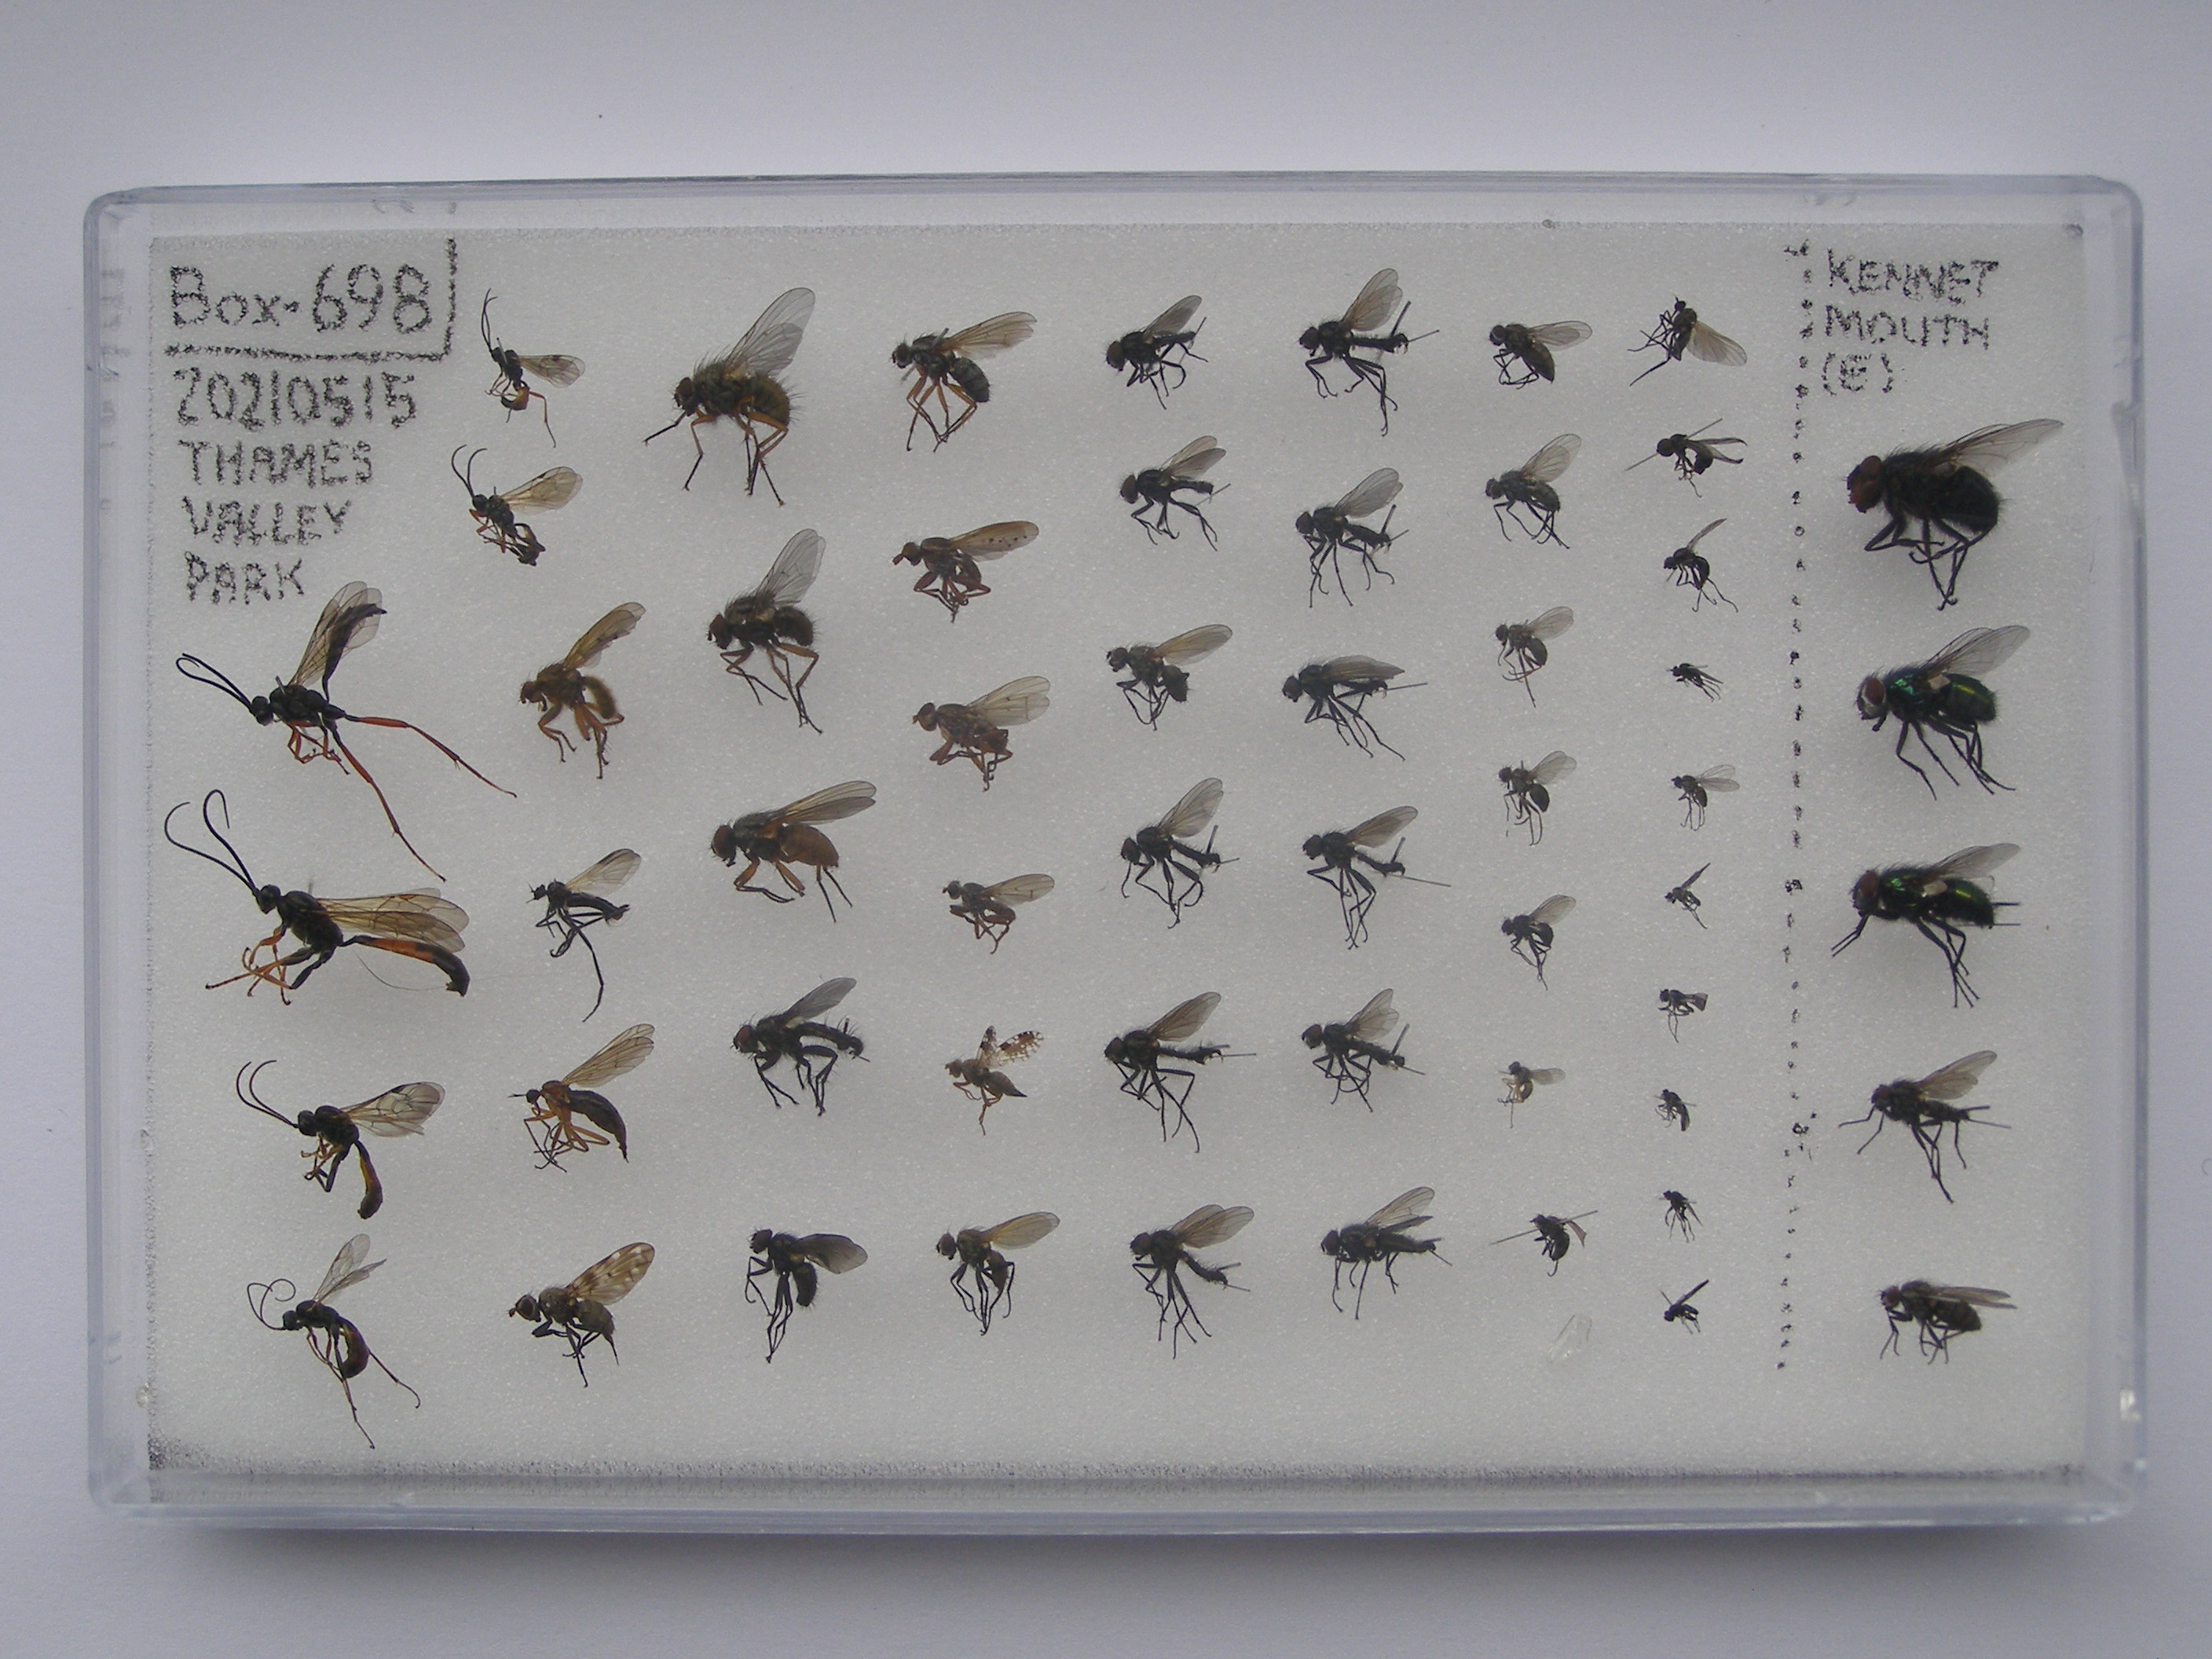 Box-698
20210515
THAMES
VALLEY
PARK
KENNET
MOUTH
(E)